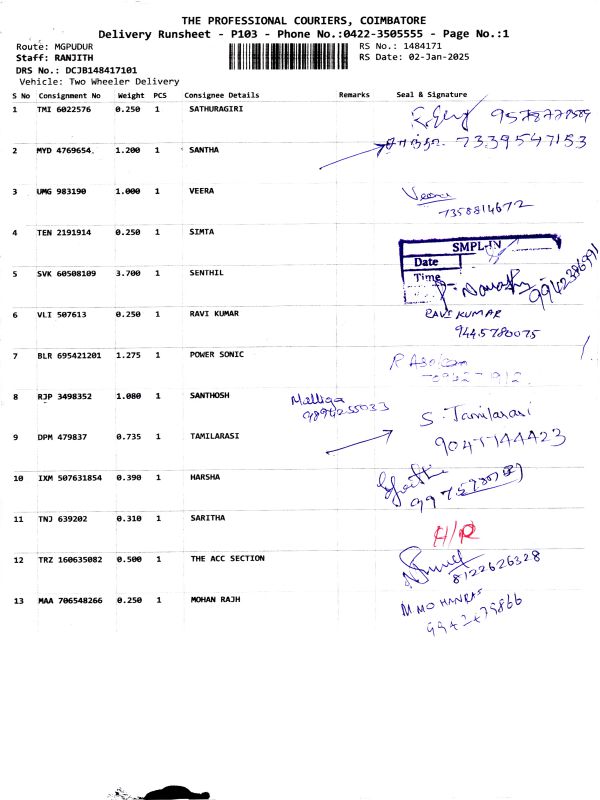 THE PROFESSIONAL COURIERS, COIMBATORE
Delivery Runsheet - P103 - Phone No.:0422-3505555 - Page No.:1
Route: MGPUDUR RS No.: 1484171
Staff: RANJITH RS Date: 02-Jan-2025
DRS No.: DCJB148417101
Vehicle: Two Wheeler Delivery
S No Consignment No Weight PCS Consignee Details Remarks Seal & Signature
1 TMI 6022576 0.250 1 SATHURAGIRI
2 MYD 4769654 1.200 1 SANTHA 7339547153
3 UMG 983190 1.000 1 VEERA Veera
7358814672
4 TEN 2191914 0.250 1 SIMTA
SMPL-IN
Date
Time
5 SVK 60508109 3.700 1 SENTHIL 9942386991
6 VLI 507613 0.250 1 RAVI KUMAR RAVI KUMAR
9445780075
7 BLR 695421201 1.275 1 POWER SONIC
8 RJP 3498352 1.080 1 SANTHOSH Malliga
9894255033
S. Tamilarasi
9 DPM 479837 0.735 1 TAMILARASI
10 IXM 507631854 0.390 1 HARSHA
11 TNJ 639202 0.310 1 SARITHA H/R
12 TRZ 160635082 0.500 1 THE ACC SECTION
8122626328
13 MAA 706548266 0.250 1 MOHAN RAJH